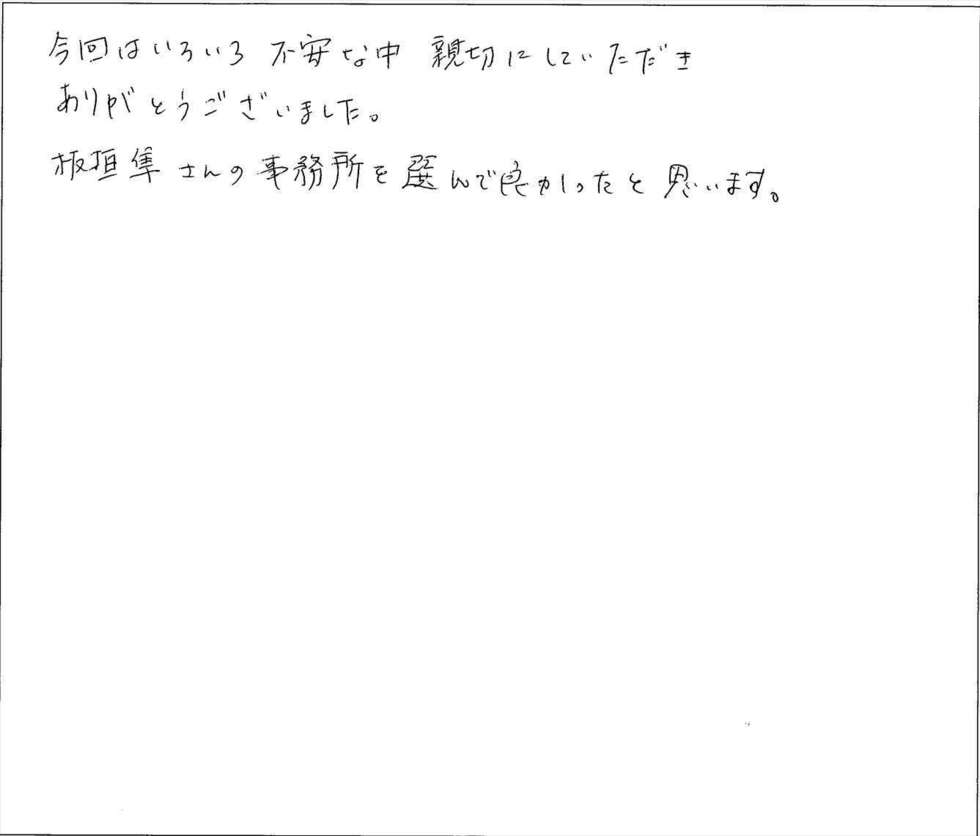 今回はいろいろ 不安な中 親切にしていただき
ありがとうございました。
板垣隼さんの事務所を選んで良かったと思います。